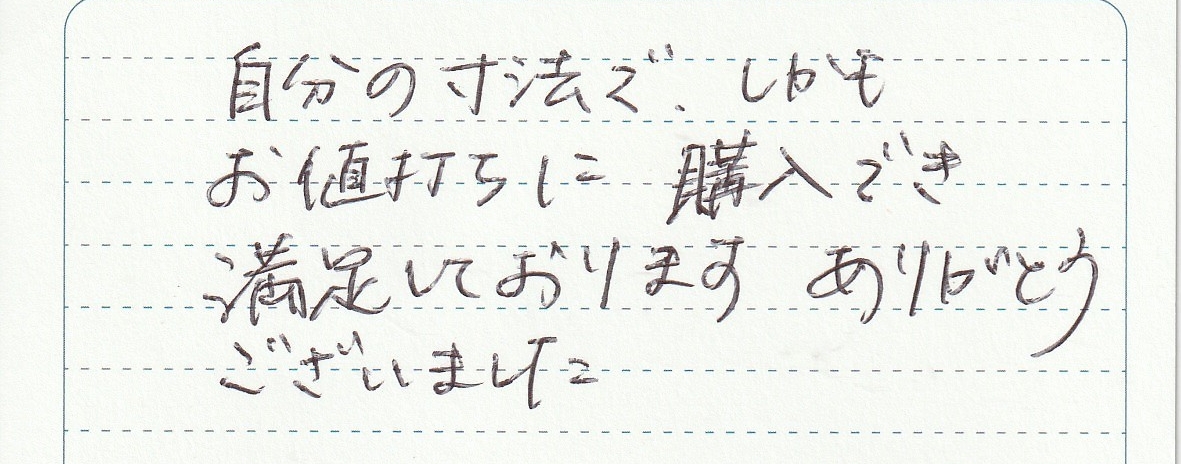 自分の寸法で、しかも
お値打ちに 購入でき
満足しております ありがとう
ございました